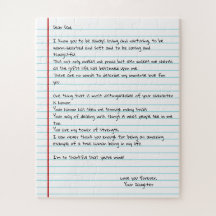 Dear Dad,
I know you to be always loving and nurturing, to be
warm-hearted and soft and to be caring and
thoughtful.
That not only makes me proud but also makes me cherish
all the gifts life has bestowed upon me.
There are no words to describe my immense love for
you.
One thing that is most distinguishable of your character
is humor.
Your humor has seen me through many trials.
Your way of dealing with things is what people like in me
too.
You are my tower of strength.
I can never thank you enough for being an amazing
example of a true human being in my life.
I'm so thankful that you're mine!
Love you forever,
Your Daughter